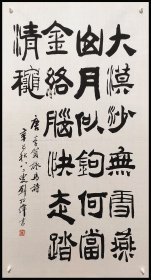 大漠沙無雪燕
山月似鉤何當
金絡腦快走踏
清穐
唐李賀詠馬詩
辛巳秋
劉
書